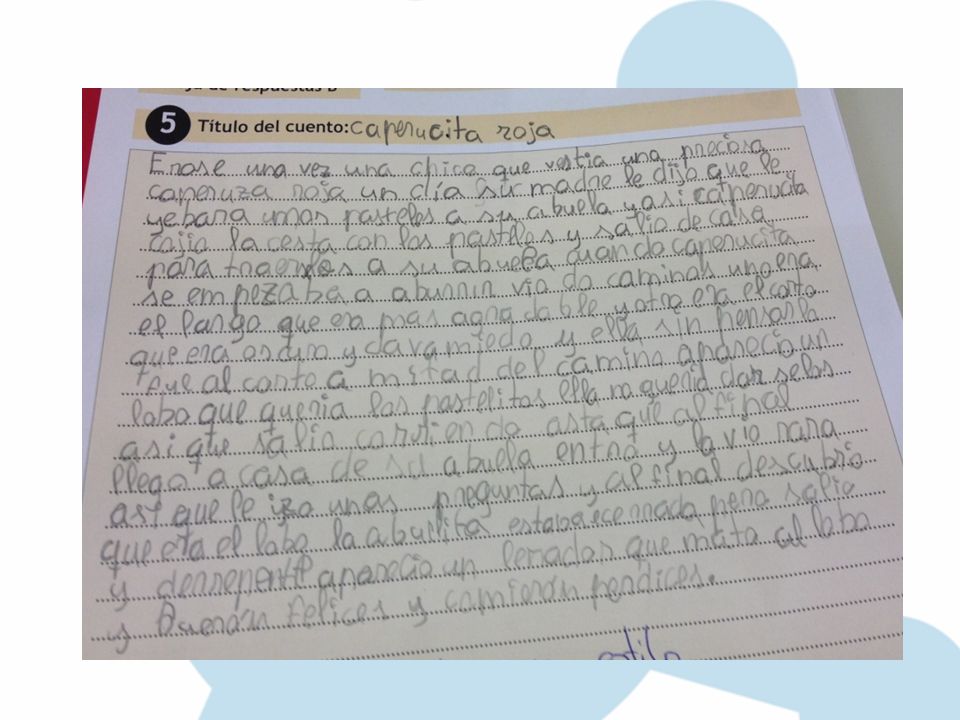 ja de respuestas B
5 Título del cuento: caperucita roja
Erase una vez una chica que vestia una preciosa
caperuza roja un día su madre le dijo que le
yebara unos pasteles a su abuela y asi caperucita
cojio la cesta con los pasteles y salio de casa
para traerlos a su abuela cuando caperucita
se empezaba a aburrir vio do caminos uno era
el largo que era mas agradable y otro era el corto
que era oscuro y dava miedo y ella sin pensarlo
fue al corto a mitad del camino aparecio un
lobo que queria los pastelitos ella no queria darselos
asi que salio corriendo asta que al final
llego a casa de su abuela entró y la vio rara
asi que le izo unas preguntas y al final descubrio
que era el lobo la abuelita estaba ecerrada pero salio
y derrepente aparecio un lenador que mata al lobo
y fueron felices y comieron perdices.
estilo